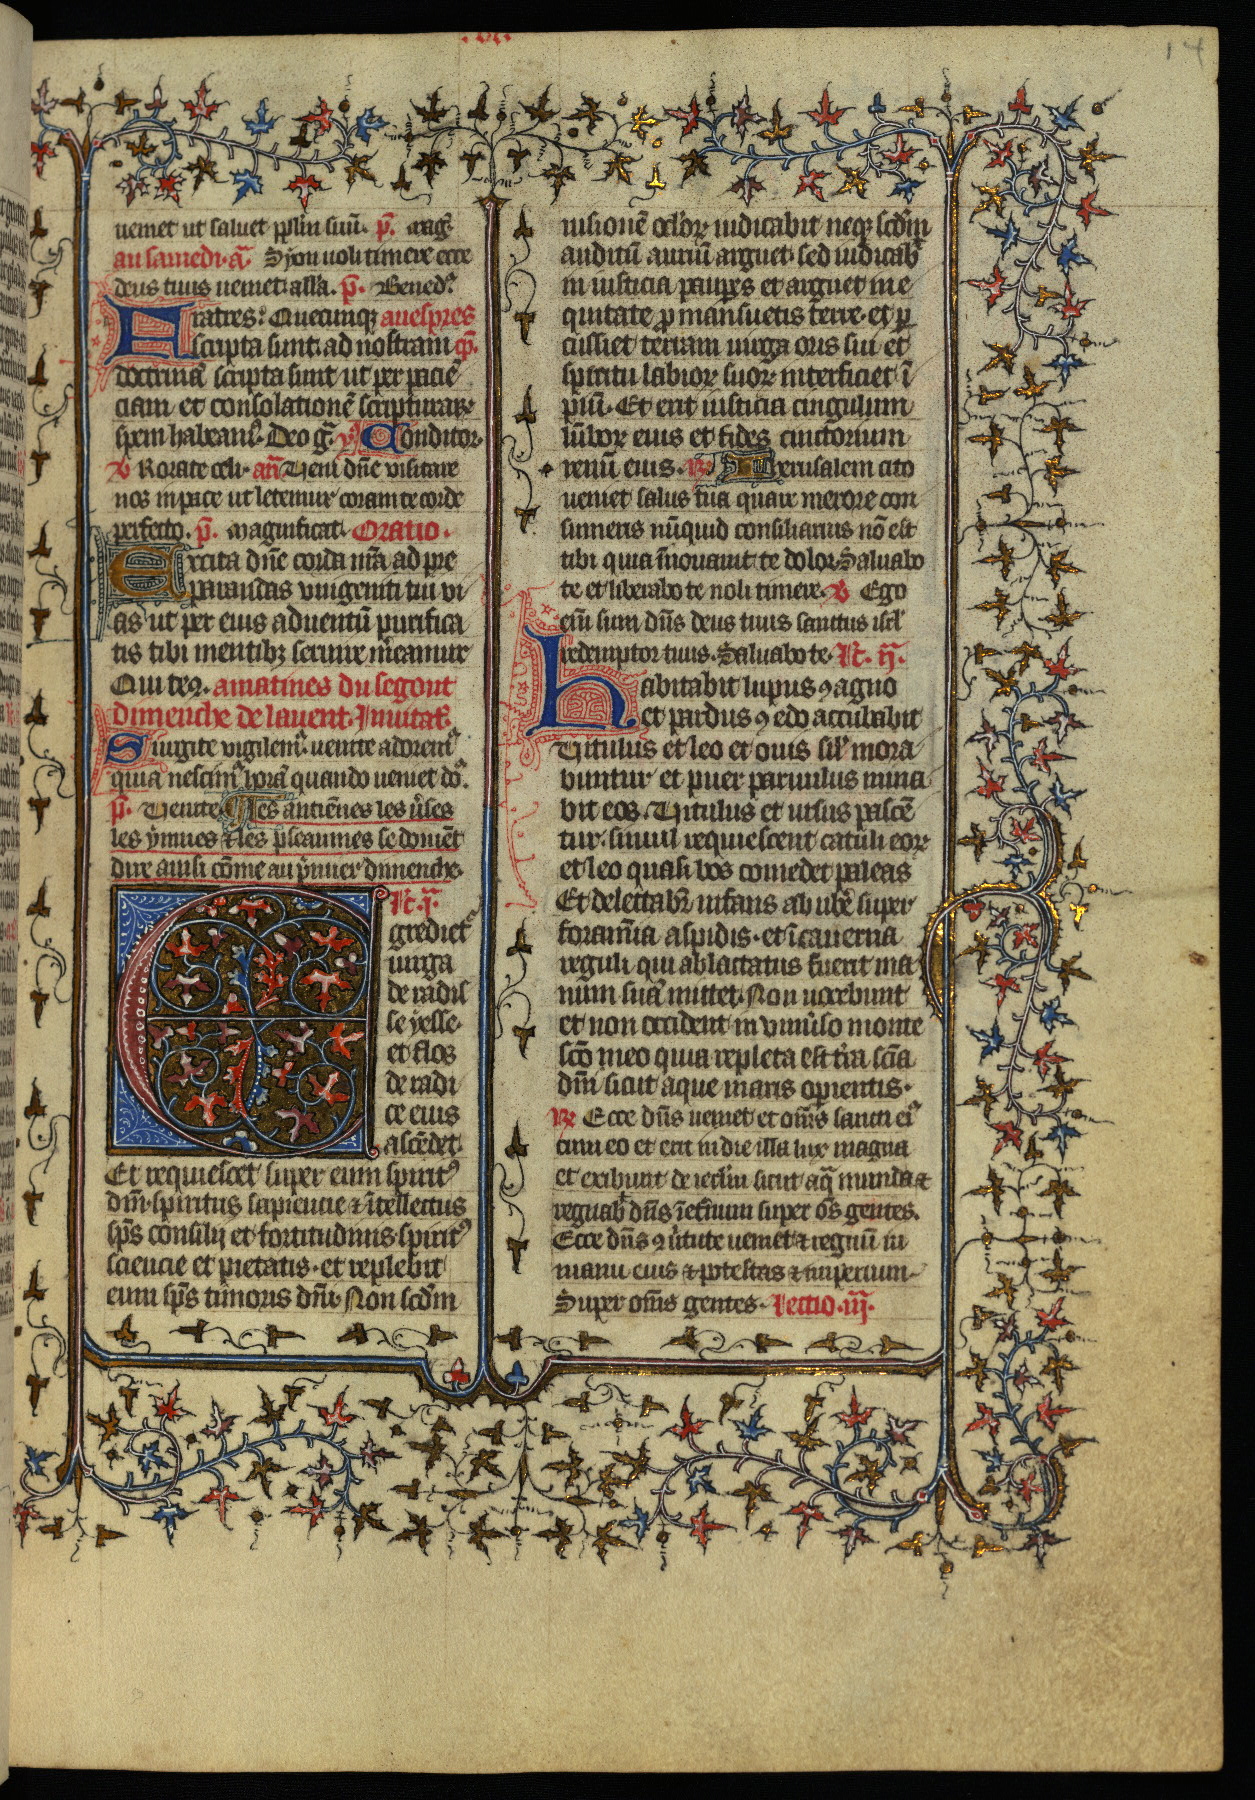 14
uemet ut saluet pplm suū. p̄. mag̃.
au samedi. ā. Syon noli timere ecce
deus tuus ueniet alla. p̄. Bened.
Fratres. Quecunqꝫ auespres
scripta sunt. ad nostram cp̄.
doctrinā scripta sunt ut per pacie
ciam et consolationē scripturaꝝ
spem habeam. Deo g̃. ys Conditor.
v Rorate celi. an̄ Ueni dn̄e visitare
nos in pace ut letemur coram te corde
perfecto. p̄. magnificat. Oratio.
Excita dn̄e corda nr̄a ad pre
parandas vnigeniti tui vi
as ut per eius aduentū purifica
tis tibi mentibꝫ seruire mereamur
Qui tec̄. a matines du segont
dimenche de lauent. Inuitat.
Surgite vigilem. uenite adorem
quia nescim horā quando ueniet do.
p̄. Uenite Les antienes les u̇ses
les ymnes & les pseaumes se doiuēt
dire ausi cōme au p̄mier dimenche.
lc̄. i.
Egrediet
uirga
de radi
se yesse.
et flos
de radi
ce eius
ascēdet.
Et requiescet super eum spirit
dn̄i. spiritus sapiencie & ītellectus
sp̄s consilij et fortitudinis. spirit
sciencie et pietatis. et replebit
eum sp̄s timoris dn̄i. Non scdm
uisionē oculoꝝ iudicabit neqꝫ scdm
auditū auriū arguet. sed iudicab
in iusticia paupes et arguet in e
quitate p mansuetis terre. et p
cussiet terram uirga oris sui et
spiritu labioꝝ suoꝝ interficiet ī
piū. Et erit iusticia cingulum
lūboꝝ eius et fides cinctorium
renū eius. ꝶ. Iherusalem cito
ueniet salus tua quare merore con
sumeris nūquid consiliarius nō est
tibi quia īnouauit te dolor. Saluabo
te et liberabo te noli timere. v Ego
em̄ sum dn̄s deus tuus sanctus isrl
redemptor tuus. Saluabo te. lc̄. ii.
Habitabit lupus ꝯ agno
et pardus ꝯ edo accubabit
Uitulus et leo et ouis sil mora
buntur et puer paruulus mina
bit eos. Uitulus et ursus pascē
tur. simul requiescent catuli eoꝝ
et leo quasi bos comedet paleas
Et delectabr̄ infans ab ube super
foramīa aspidis. et ī cauerna
reguli qui ablactatus fuerit ma
num suā mittet. Non nocebunt
et non occident in vniuso monte
scō meo quia repleta est tr̄a scīa
dn̄i sicut aque maris opientis.
ꝶ Ecce dn̄s ueniet et om̄s sancti ei
cum eo et erit in die illa lux magna
et exibunt de ierlm sicut aq̄ munda &
regnab dn̄s ī et̄num super om̄s gentes.
Ecce dn̄s ꝯ uirtute ueniet & regnū in
manu eius & potestas & imperium.
Super om̄s gentes. Lectio. iii.